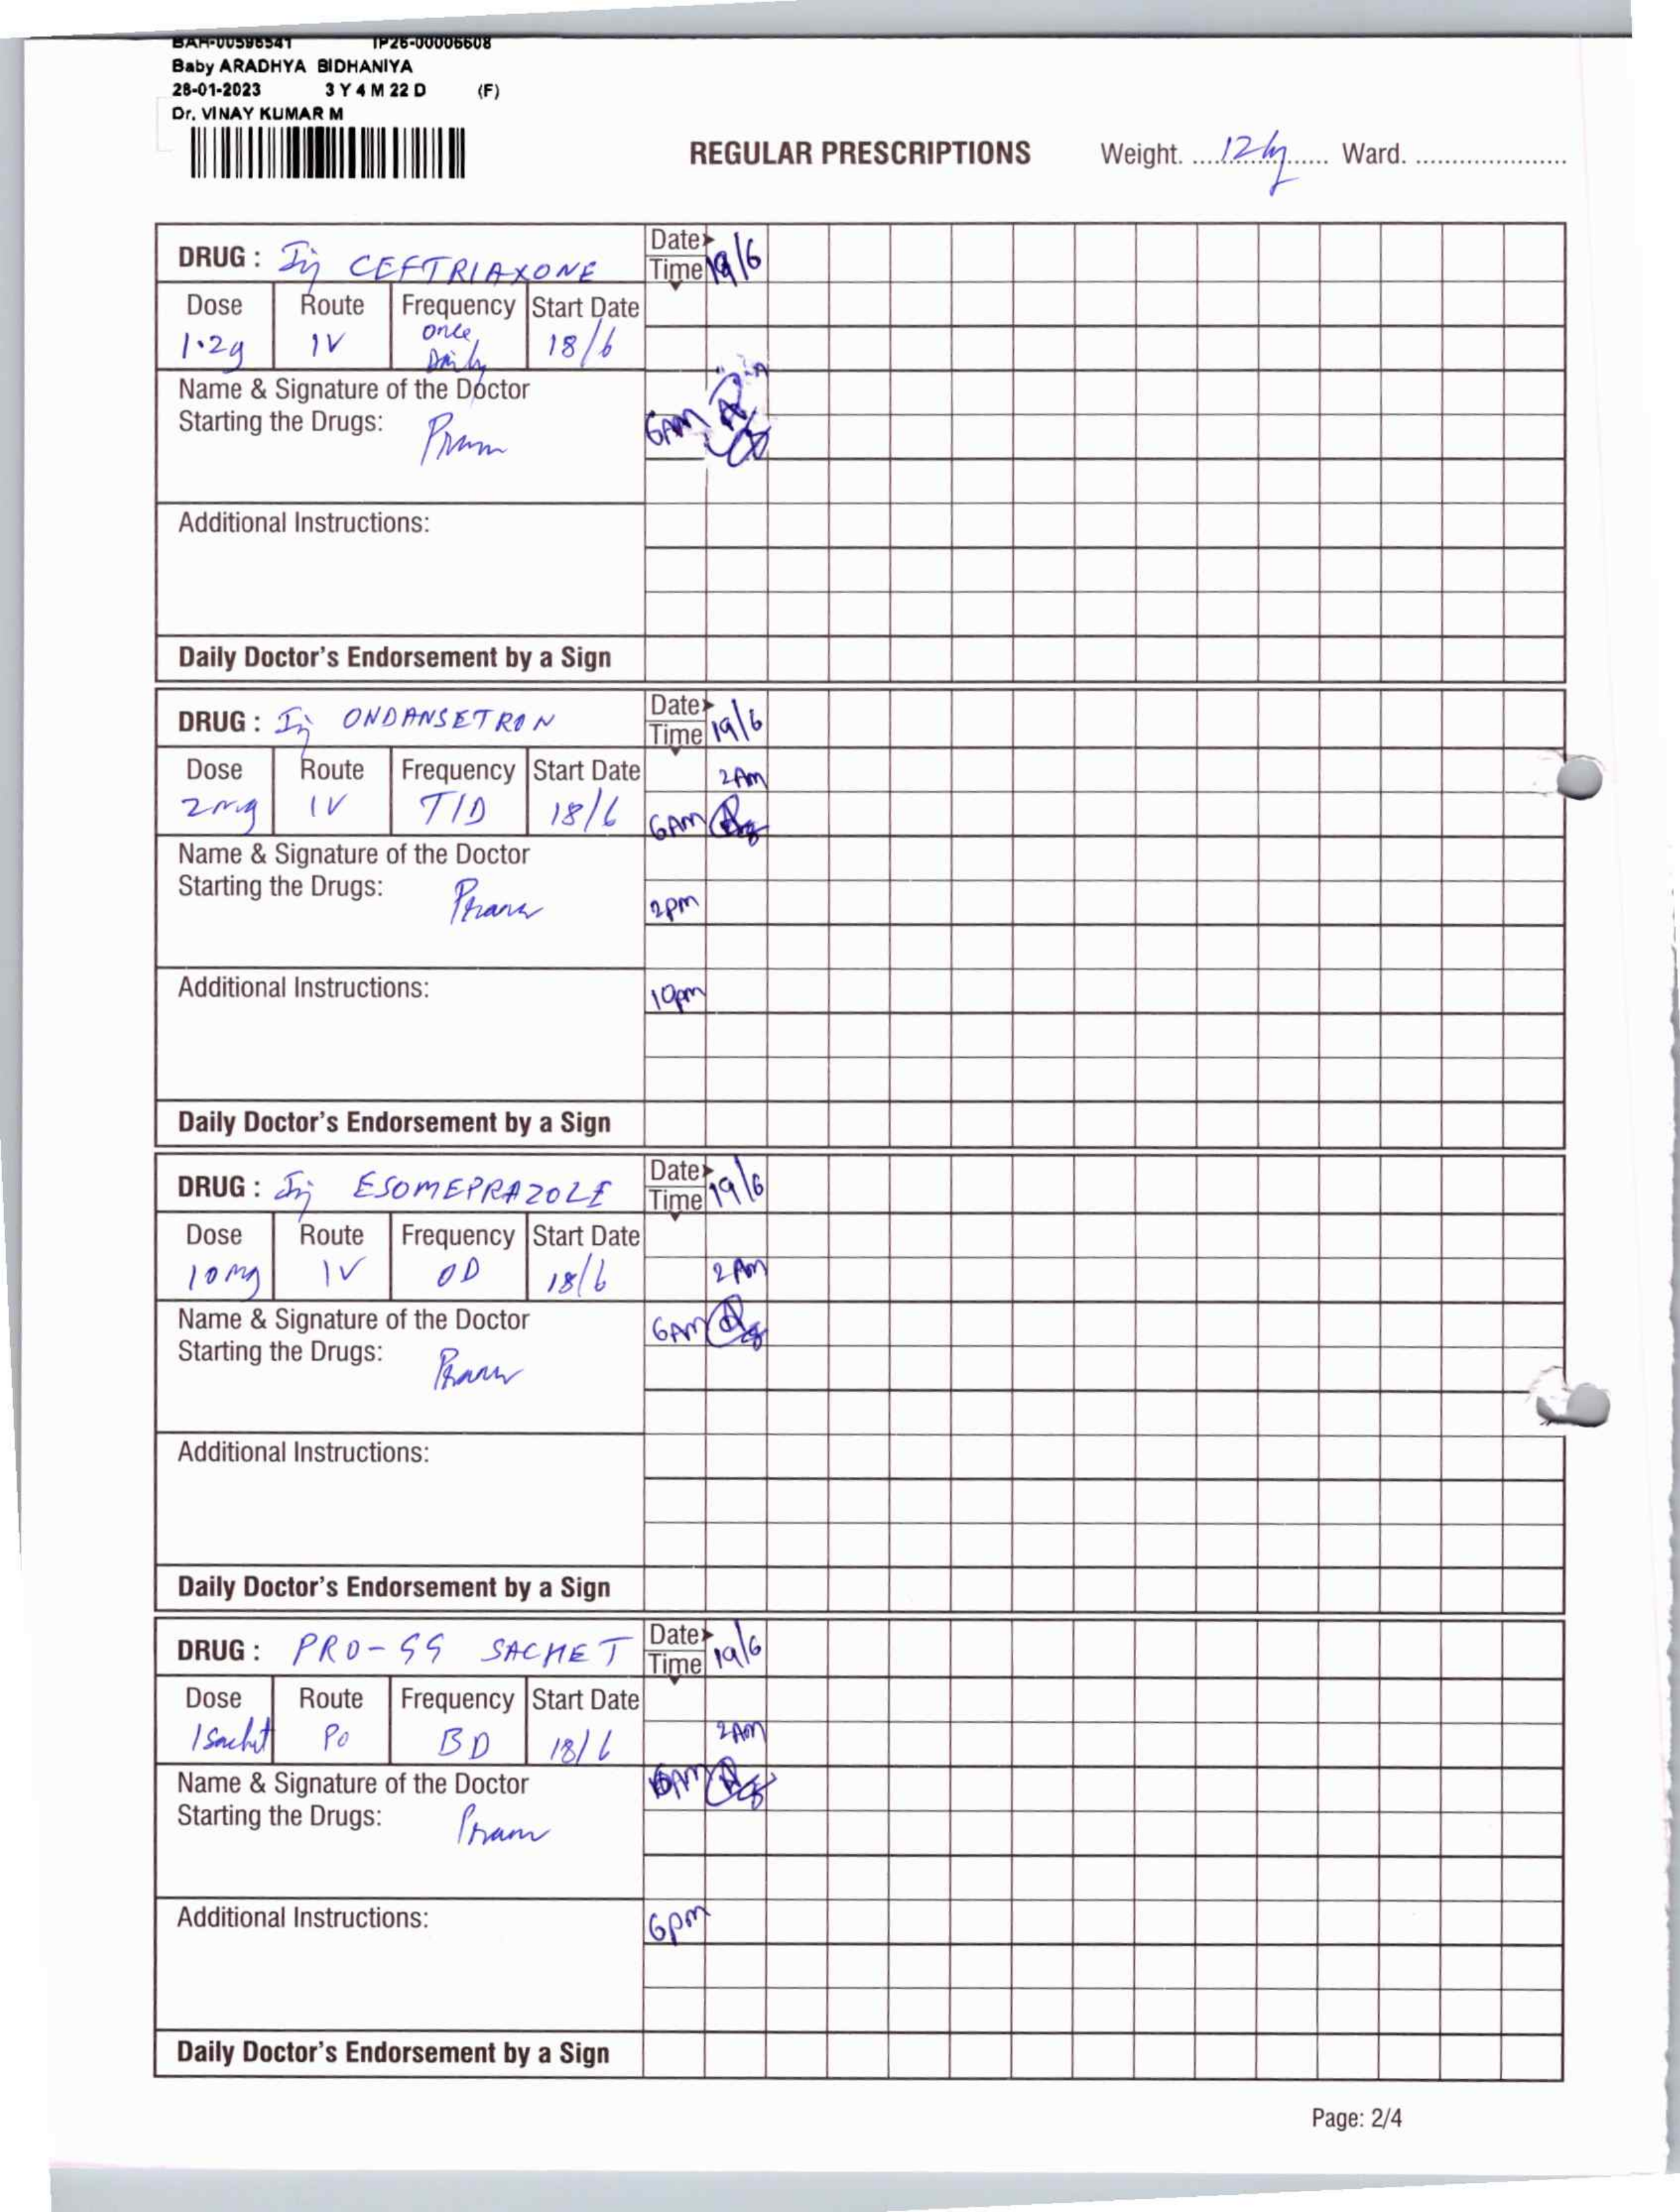 BAH-00596541 IP26-00006608
Baby ARADHYA BIDHANIYA
28-01-2023 3 Y 4 M 22 D (F)
Dr. VINAY KUMAR M
REGULAR PRESCRIPTIONS Weight. 12kg Ward.
DRUG : Inj CEFTRIAXONE Date
Time 19/6
Dose Route Frequency Start Date
1.2g IV once Daily 18/6
Name & Signature of the Doctor
Starting the Drugs: 6AM
Additional Instructions:
Daily Doctor's Endorsement by a Sign
DRUG : Inj ONDANSETRON Date
Time 19/6
Dose Route Frequency Start Date 2Am
2mg IV TID 18/6 6AM
Name & Signature of the Doctor
Starting the Drugs: 2pm
Additional Instructions: 10pm
Daily Doctor's Endorsement by a Sign
DRUG : Inj ESOMEPRAZOLE Date
Time 19/6
Dose Route Frequency Start Date
10mg IV OD 18/6 2Am
Name & Signature of the Doctor 6AM
Starting the Drugs:
Additional Instructions:
Daily Doctor's Endorsement by a Sign
DRUG : PRO-GG SACHET Date
Time 19/6
Dose Route Frequency Start Date
1 Sachet Po BD 18/6 2AM
Name & Signature of the Doctor 6AM
Starting the Drugs:
Additional Instructions: 6pm
Daily Doctor's Endorsement by a Sign
Page: 2/4